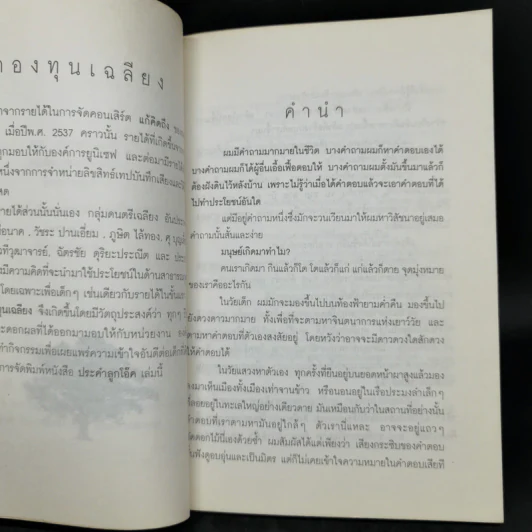 กองทุนเฉลียง
จากรายได้ในการจัดคอนเสิร์ต แก้คิดถึง ของ
เมื่อปีพ.ศ. 2537 คราวนั้น รายได้ที่เกิดขึ้น
ถูกมอบให้กับองค์การยูนิเซฟ และต่อมามีรายได้
หนึ่งจากการจำหน่ายลิขสิทธิ์เทปบันทึกเสียงและ
สด
รายได้ส่วนนั้นนั่นเอง กลุ่มดนตรีเฉลียง อัน
วัชระ ปานเอี่ยม . ภูษิต ไล้ทอง. ศุ
วุฒาจารย์. ฉัตรชัย ดุริยะประณีต และ
มีความคิดที่จะนำมาใช้ประโยชน์ในด้านสาธารณ
โดยเฉพาะเพื่อเด็กๆ เช่นเดียวกับรายได้ใน
ทุนเฉลียง จึงเกิดขึ้นโดยมีวัตถุประสงค์ว่า ทุกๆ
ดอกผลที่ได้ออกมามอบให้กับหน่วยงาน
ทำกิจกรรมเพื่อเผยแพร่ความเข้าใจอันดีต่อเด็ก
การจัดพิมพ์หนังสือ ประคำลูกโอ๊ค เล่มนี้
คำนำ
ผมมีคำถามมากมายในชีวิต บางคำถามผมก็หาคำตอบเองได้
บางคำถามผมก็ได้ผู้อื่นเอื้อเฟื้อตอบให้ บางคำถามผมตั้งมันขึ้นมาแล้วก็
ต้องฝังดินไว้หลังบ้าน เพราะไม่รู้ว่าเมื่อได้คำตอบแล้วจะเอาคำตอบที่ได้
ไปทำประโยชน์อันใด
แต่มีอยู่คำถามหนึ่งซึ่งมักจะวนเวียนมาให้ผมหาวิสัชนาอยู่เสมอ
คำถามนั้นสั้นและง่าย
มนุษย์เกิดมาทำไม?
คนเราเกิดมา กินแล้วก็โต โตแล้วก็แก่ แก่แล้วก็ตาย จุดมุ่งหมาย
ของเราคืออะไรกัน
ในวัยเด็ก ผมมักจะมองขึ้นไปบนท้องฟ้ายามค่ำคืน มองขึ้นไป
ยังดวงดาวมากมาย ทั้งเพื่อที่จะตามหาจินตนาการแห่งเยาว์วัย และ
ตามหาคำตอบที่ตัวเองสงสัยอยู่ โดยหวังว่าอาจจะมีดาวดวงใดสักดวง
ให้คำตอบได้
ในวัยแสวงหาตัวเอง ทุกครั้งที่ยืนอยู่บนยอดหน้าผาสูงแล้วมอง
ลงมาเห็นเมืองทั้งเมืองเท่าจานข้าว หรือนอนอยู่ในเรือประมงลำเล็กๆ
ที่ลอยอยู่ในทะเลใหญ่อย่างเดียวดาย มันเหมือนกับว่าในสถานที่อย่างนั้น
คำตอบที่เราตามหามันอยู่ใกล้ๆ ตัวเรานี่แหละ อาจจะอยู่แถวๆ
ดอกไม้นี่เองด้วยซ้ำ ผมสัมผัสได้แต่เพียงว่า เสียงกระซิบของคำตอบ
นั้นฟังดูอบอุ่นและเป็นมิตร แต่ก็ไม่เคยเข้าใจความหมายในคำตอบเสียที